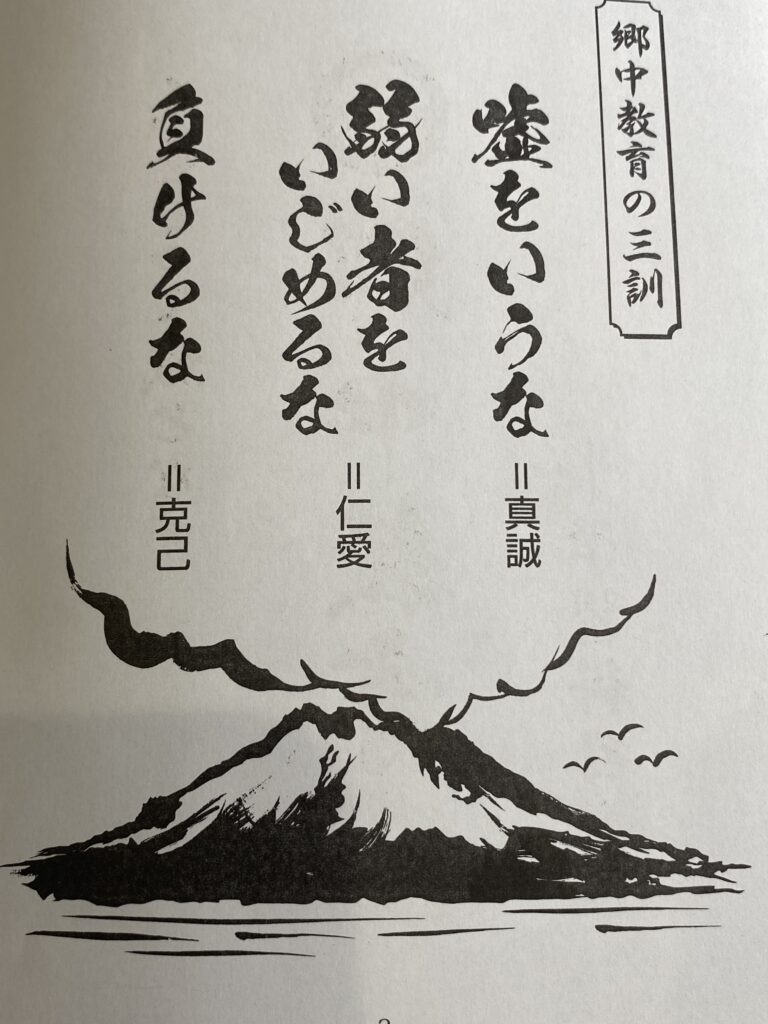 郷中教育の三訓
嘘をいうな
＝真誠
弱い者を
いじめるな
＝仁愛
負けるな
＝克己